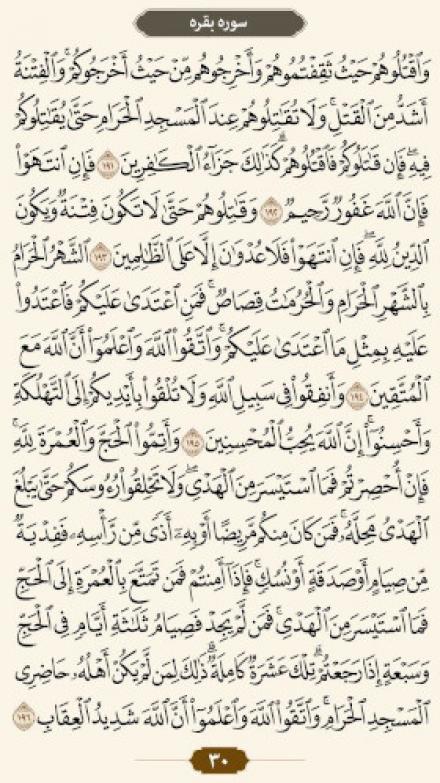 سوره بقره
وَٱقۡتُلُوهُمۡ حَيۡثُ ثَقِفۡتُمُوهُمۡ وَأَخۡرِجُوهُم مِّنۡ حَيۡثُ أَخۡرَجُوكُمۡۚ وَٱلۡفِتۡنَةُ
أَشَدُّ مِنَ ٱلۡقَتۡلِۚ وَلَا تُقَٰتِلُوهُمۡ عِندَ ٱلۡمَسۡجِدِ ٱلۡحَرَامِ حَتَّىٰ يُقَٰتِلُوكُمۡ
فِيهِۖ فَإِن قَٰتَلُوكُمۡ فَٱقۡتُلُوهُمۡۗ كَذَٰلِكَ جَزَآءُ ٱلۡكَٰفِرِينَ ١٩١ فَإِنِ ٱنتَهَوۡاْ
فَإِنَّ ٱللَّهَ غَفُورٞ رَّحِيمٞ ١٩٢ وَقَٰتِلُوهُمۡ حَتَّىٰ لَا تَكُونَ فِتۡنَةٞ وَيَكُونَ
ٱلدِّينُ لِلَّهِۖ فَإِنِ ٱنتَهَوۡاْ فَلَا عُدۡوَٰنَ إِلَّا عَلَى ٱلظَّٰلِمِينَ ١٩٣ ٱلشَّهۡرُ ٱلۡحَرَامُ
بِٱلشَّهۡرِ ٱلۡحَرَامِ وَٱلۡحُرُمَٰتُ قِصَاصٞۚ فَمَنِ ٱعۡتَدَىٰ عَلَيۡكُمۡ فَٱعۡتَدُواْ
عَلَيۡهِ بِمِثۡلِ مَا ٱعۡتَدَىٰ عَلَيۡكُمۡۚ وَٱتَّقُواْ ٱللَّهَ وَٱعۡلَمُوٓاْ أَنَّ ٱللَّهَ مَعَ
ٱلۡمُتَّقِينَ ١٩٤ وَأَنفِقُواْ فِي سَبِيلِ ٱللَّهِ وَلَا تُلۡقُواْ بِأَيۡدِيكُمۡ إِلَى ٱلتَّهۡلُكَةِ
وَأَحۡسِنُوٓاْۚ إِنَّ ٱللَّهَ يُحِبُّ ٱلۡمُحۡسِنِينَ ١٩٥ وَأَتِمُّواْ ٱلۡحَجَّ وَٱلۡعُمۡرَةَ لِلَّهِۚ
فَإِنۡ أُحۡصِرۡتُمۡ فَمَا ٱسۡتَيۡسَرَ مِنَ ٱلۡهَدۡيِۖ وَلَا تَحۡلِقُواْ رُءُوسَكُمۡ حَتَّىٰ يَبۡلُغَ
ٱلۡهَدۡيُ مَحِلَّهُۥۚ فَمَن كَانَ مِنكُم مَّرِيضًا أَوۡ بِهِۦٓ أَذٗى مِّن رَّأۡسِهِۦ فَفِدۡيَةٞ
مِّن صِيَامٍ أَوۡ صَدَقَةٍ أَوۡ نُسُكٖۚ فَإِذَآ أَمِنتُمۡ فَمَن تَمَتَّعَ بِٱلۡعُمۡرَةِ إِلَى ٱلۡحَجِّ
فَمَا ٱسۡتَيۡسَرَ مِنَ ٱلۡهَدۡيِۚ فَمَن لَّمۡ يَجِدۡ فَصِيَامُ ثَلَٰثَةِ أَيَّامٖ فِي ٱلۡحَجِّ
وَسَبۡعَةٍ إِذَا رَجَعۡتُمۡۗ تِلۡكَ عَشَرَةٞ كَامِلَةٞۗ ذَٰلِكَ لِمَن لَّمۡ يَكُنۡ أَهۡلُهُۥ حَاضِرِي
ٱلۡمَسۡجِدِ ٱلۡحَرَامِۚ وَٱتَّقُواْ ٱللَّهَ وَٱعۡلَمُوٓاْ أَنَّ ٱللَّهَ شَدِيدُ ٱلۡعِقَابِ ١٩٦
٣٠